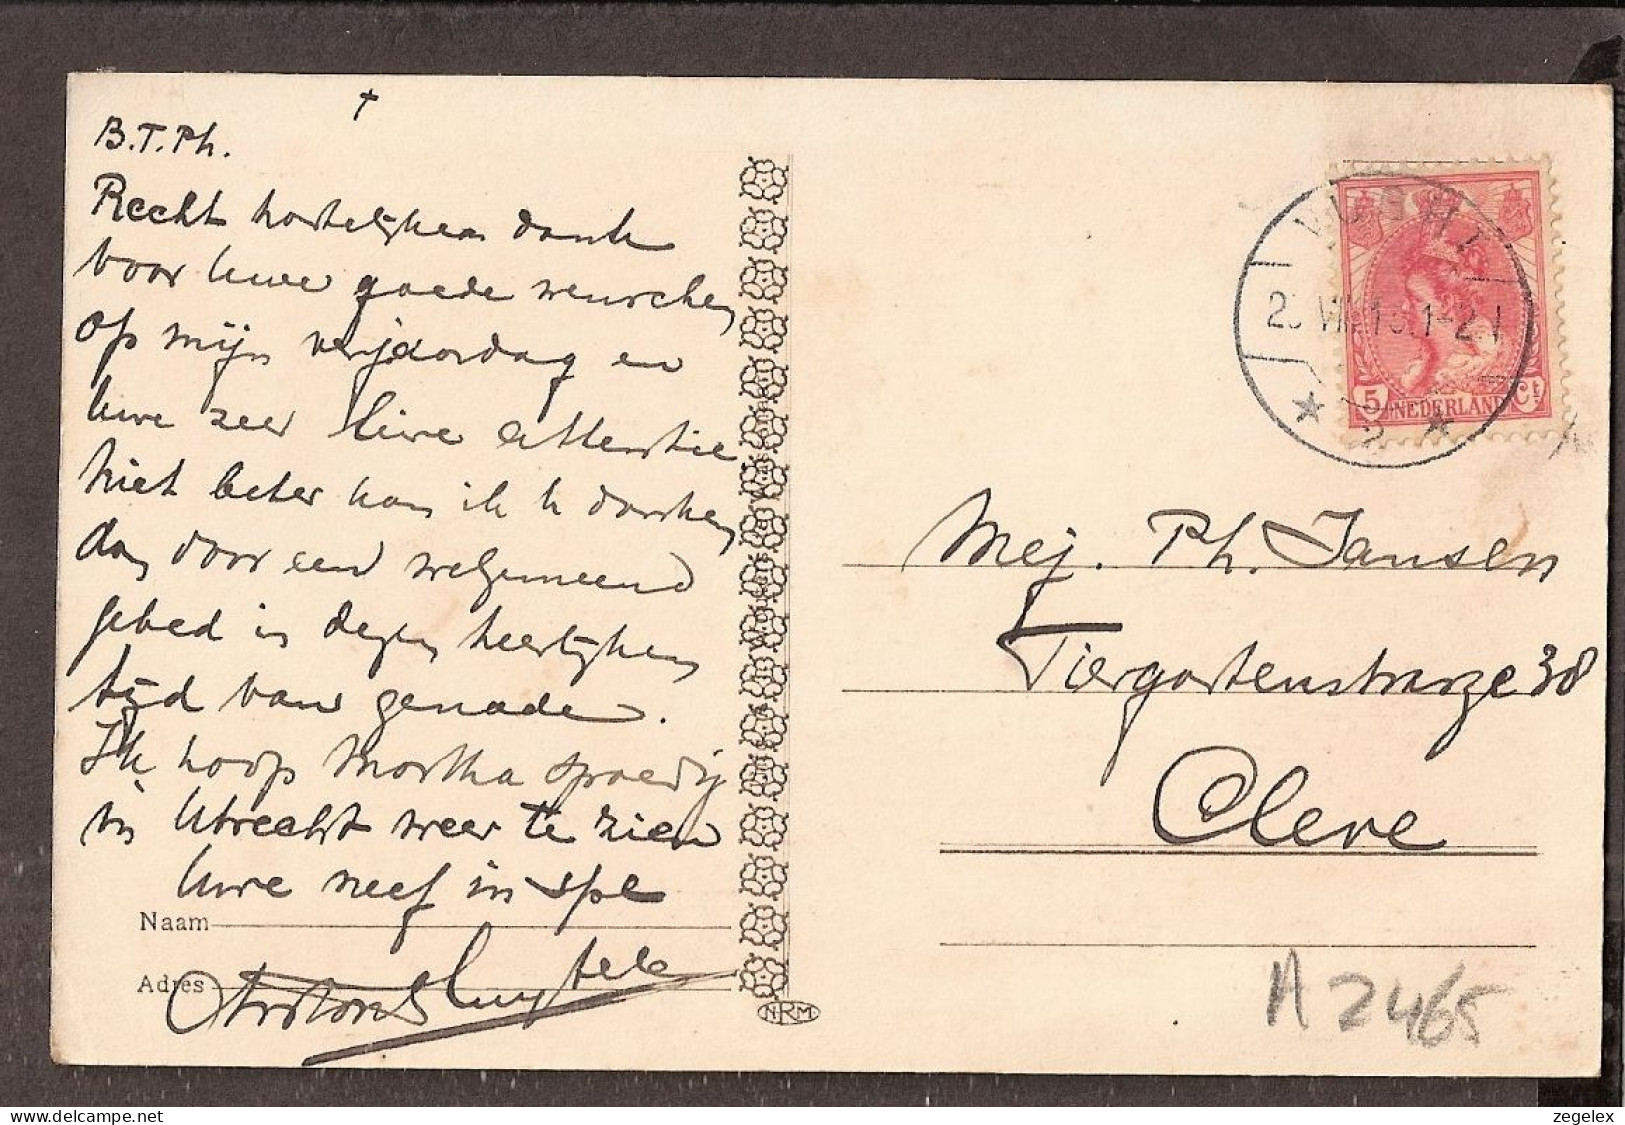 †
B.T.Ph.
Recht hartelijken dank
voor Uwe goede wenschen
op mijn verjaardag en
Uwe zeer lieve attentie
Niet beter kan ik U danken
dan door een welgemeend
gebed in dezen heerlijken
tijd van genade.
Ik hoop Martha spoedig
in Utrecht weer te zien
Uwe neef in spe
Naam
Adres
NRM
VUGHT
1-2 N
2
5 NEDERLAND Ct
Mej. Ph. Jansen
Tiergartenstrasze 38
Cleve
A 2465
zegelex